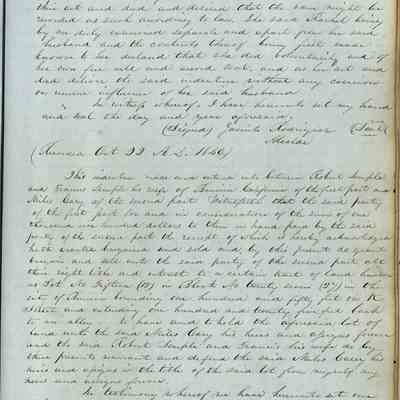 this act and deed and desired that the same might be
recorded as such according to law. The said Rachel being
by me duly examined separate and apart from her said
husband and the contents thereof being first made
known to her declared that she did voluntarily and of
her own free will and accord seal and as her act and
deed deliver the said indenture without any coercion
or undue influence of her said husband.
In witness whereof, I have hereunto set my hand
and seal the day and year aforesaid,
(Signed) Jacinto Rodriguez (Seal)
Alcalde
(Recorded Oct 22 A.D. 1849)
This indenture made and entered into between Robert Semple
and Frances Semple his wife of Benicia California of the first part and
Miles Cary of the second part Witnesseth that the said party
of the first part for and in consideration of the sum of one
thousand nine hundred dollars to them in hand paid by the said
party of the second part the receipt of which is hereby acknowledged
hath granted bargained and sold and by this present do grant
bargain and sell unto the said party of the second part all
their right title and interest to a certain tract of land known
as Lot No Fifteen (15) in Block No twenty seven (27) in the
city of Benicia bounding one hundred and fifty feet on K
Street and extending one hundred and twenty five feet back
to an alley. to have and to hold the aforesaid lot of
land unto the said Miles Cary his heirs and assigns forever
and the said Robert Semple and Frances his wife do by
these presents warrant and defend the said Miles Cary his
heirs and assigns in the title of the said lot from myself my
heirs and assigns forever.
In testimony whereof we have hereunto set our